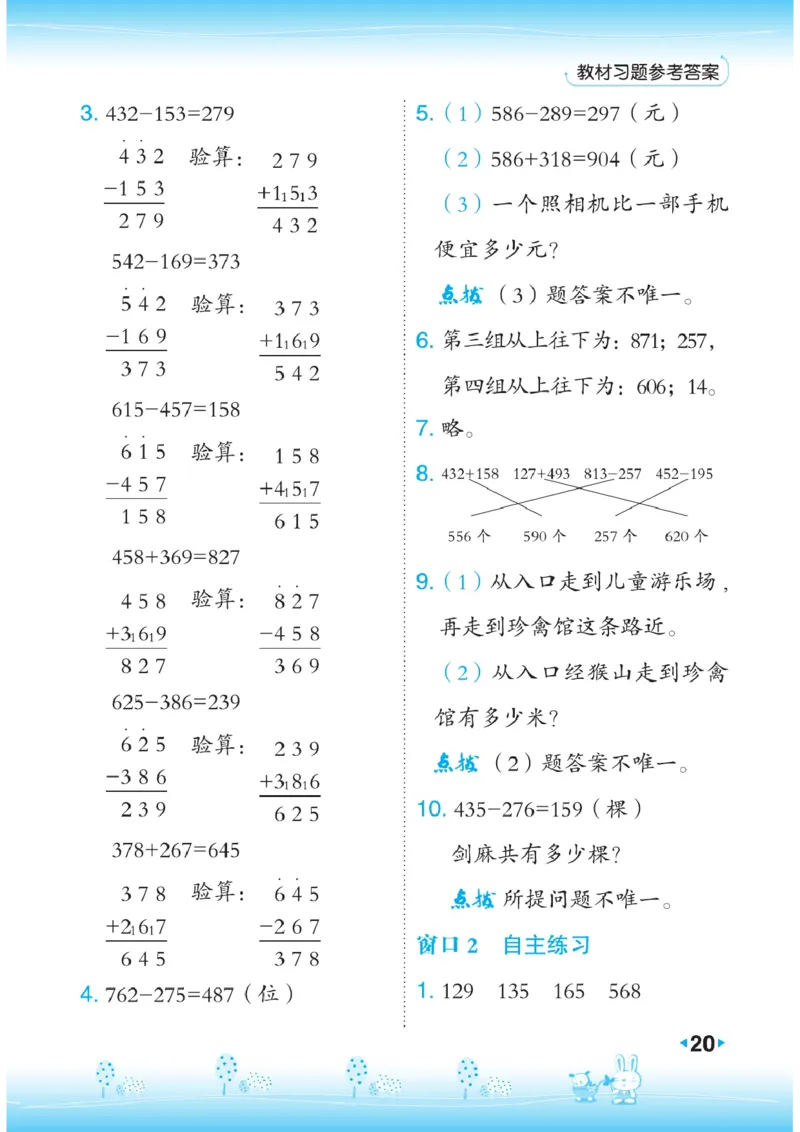 教材习题参考答案
3. 432-153=279
4 3 2 验算: 2 7 9
-1 5 3 +1₁5₁3
2 7 9 4 3 2
542-169=373
5 4 2 验算: 3 7 3
-1 6 9 +1₁6₁9
3 7 3 5 4 2
615-457=158
6 1 5 验算: 1 5 8
-4 5 7 +4₁5₁7
1 5 8 6 1 5
458+369=827
4 5 8 验算: 8 2 7
+3₁6₁9 -4 5 8
8 2 7 3 6 9
625-386=239
6 2 5 验算: 2 3 9
-3 8 6 +3₁8₁6
2 3 9 6 2 5
378+267=645
3 7 8 验算: 6 4 5
+2₁6₁7 -2 6 7
6 4 5 3 7 8
4. 762-275=487（位）
5.（1）586-289=297（元）
（2）586+318=904（元）
（3）一个照相机比一部手机
便宜多少元?
点拨（3）题答案不唯一。
6. 第三组从上往下为: 871; 257,
第四组从上往下为: 606; 14。
7. 略。
8. 432+158 127+493 813-257 452-195
556 个 590 个 257 个 620 个
9.（1）从入口走到儿童游乐场,
再走到珍禽馆这条路近。
（2）从入口经猴山走到珍禽
馆有多少米?
点拨（2）题答案不唯一。
10. 435-276=159（棵）
剑麻共有多少棵?
点拨 所提问题不唯一。
窗口 2 自主练习
1. 129 135 165 568
20